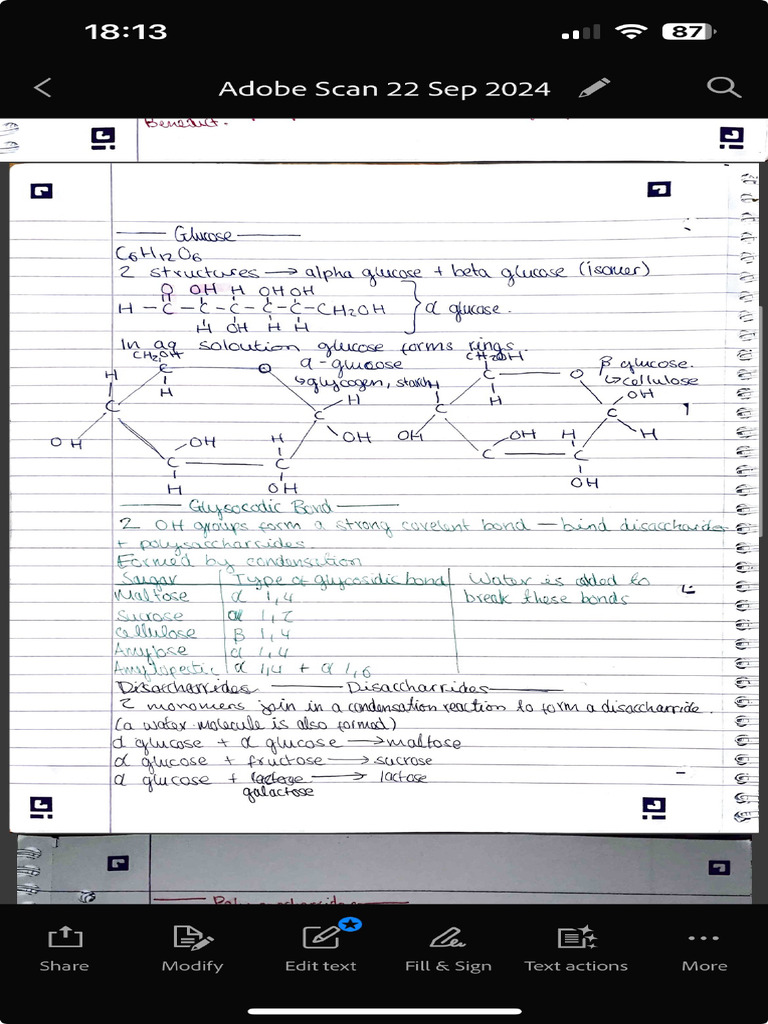 18:13
87
Adobe Scan 22 Sep 2024
Benedict.
Glucose
C6H12O6
2 structures → alpha glucose + beta glucose (isomer)
O OH H OH OH
H - C - C - C - C - C - CH2OH } α glucose.
H OH H H
In aq soloution glucose forms rings.
CH2OH α-glucose CH2OH β glucose.
H C O ↳ glycogen, starch H C O ↳ cellulose
H H OH
C C H C H C
OH OH OH OH OH H H
C C C C
H OH OH
Glysocodic Bond
2 OH groups form a strong covelent bond — bind disaccharides
+ polysaccharcides.
Formed by condensation
Saugar Type of glycosidic bond Water is added to
Maltose α 1,4 break these bonds
Sucrose α 1,2
Cellulose β 1,4
Amylose α 1,4
Amylopectic α 1,4 + α 1,6
Disaccharrides Disaccharrides
2 monomers join in a condensation reaction to form a disaccharride.
(a water molecule is also formed)
α glucose + α glucose → maltose
α glucose + fructose → sucrose
α glucose + lactose → lactose
galactose
Share
Modify
Edit text
Fill & Sign
Text actions
More